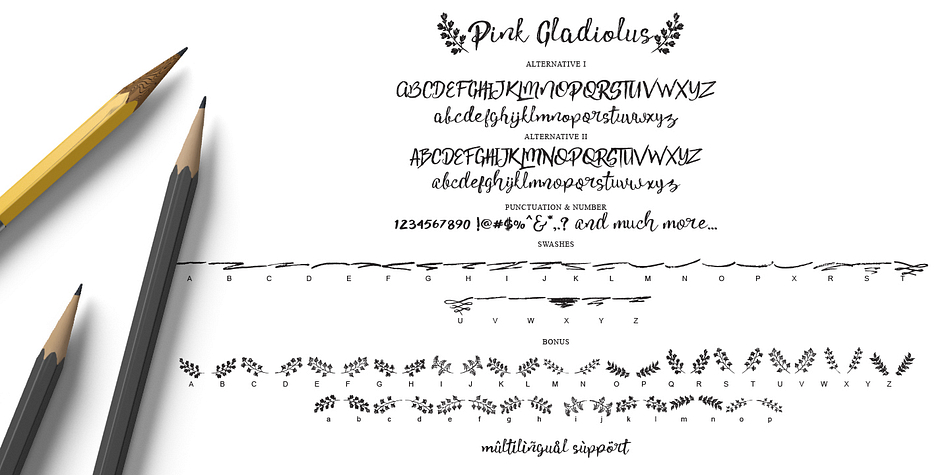 Pink Gladiolus
ALTERNATIVE I
ABCDEFGHIJKLMNOPQRSTUVWXYZ
abcdefghijklmnopqrstuvwxyz
ALTERNATIVE II
ABCDEFGHIJKLMNOPQRSTUVWXYZ
abcdefghijklmnopqrstuvwxyz
PUNCTUATION & NUMBER
1234567890 !@#$%^&*,.? and much more...
SWASHES
A B C D E F G H I J K L M N O P X R S T
U V W X Y Z
BONUS
A B C D E F G H I J K L M N O P Q R S T U V W X Y Z
a b c d e f g h i j k l m n o p
mûltilïñguâl sùppört